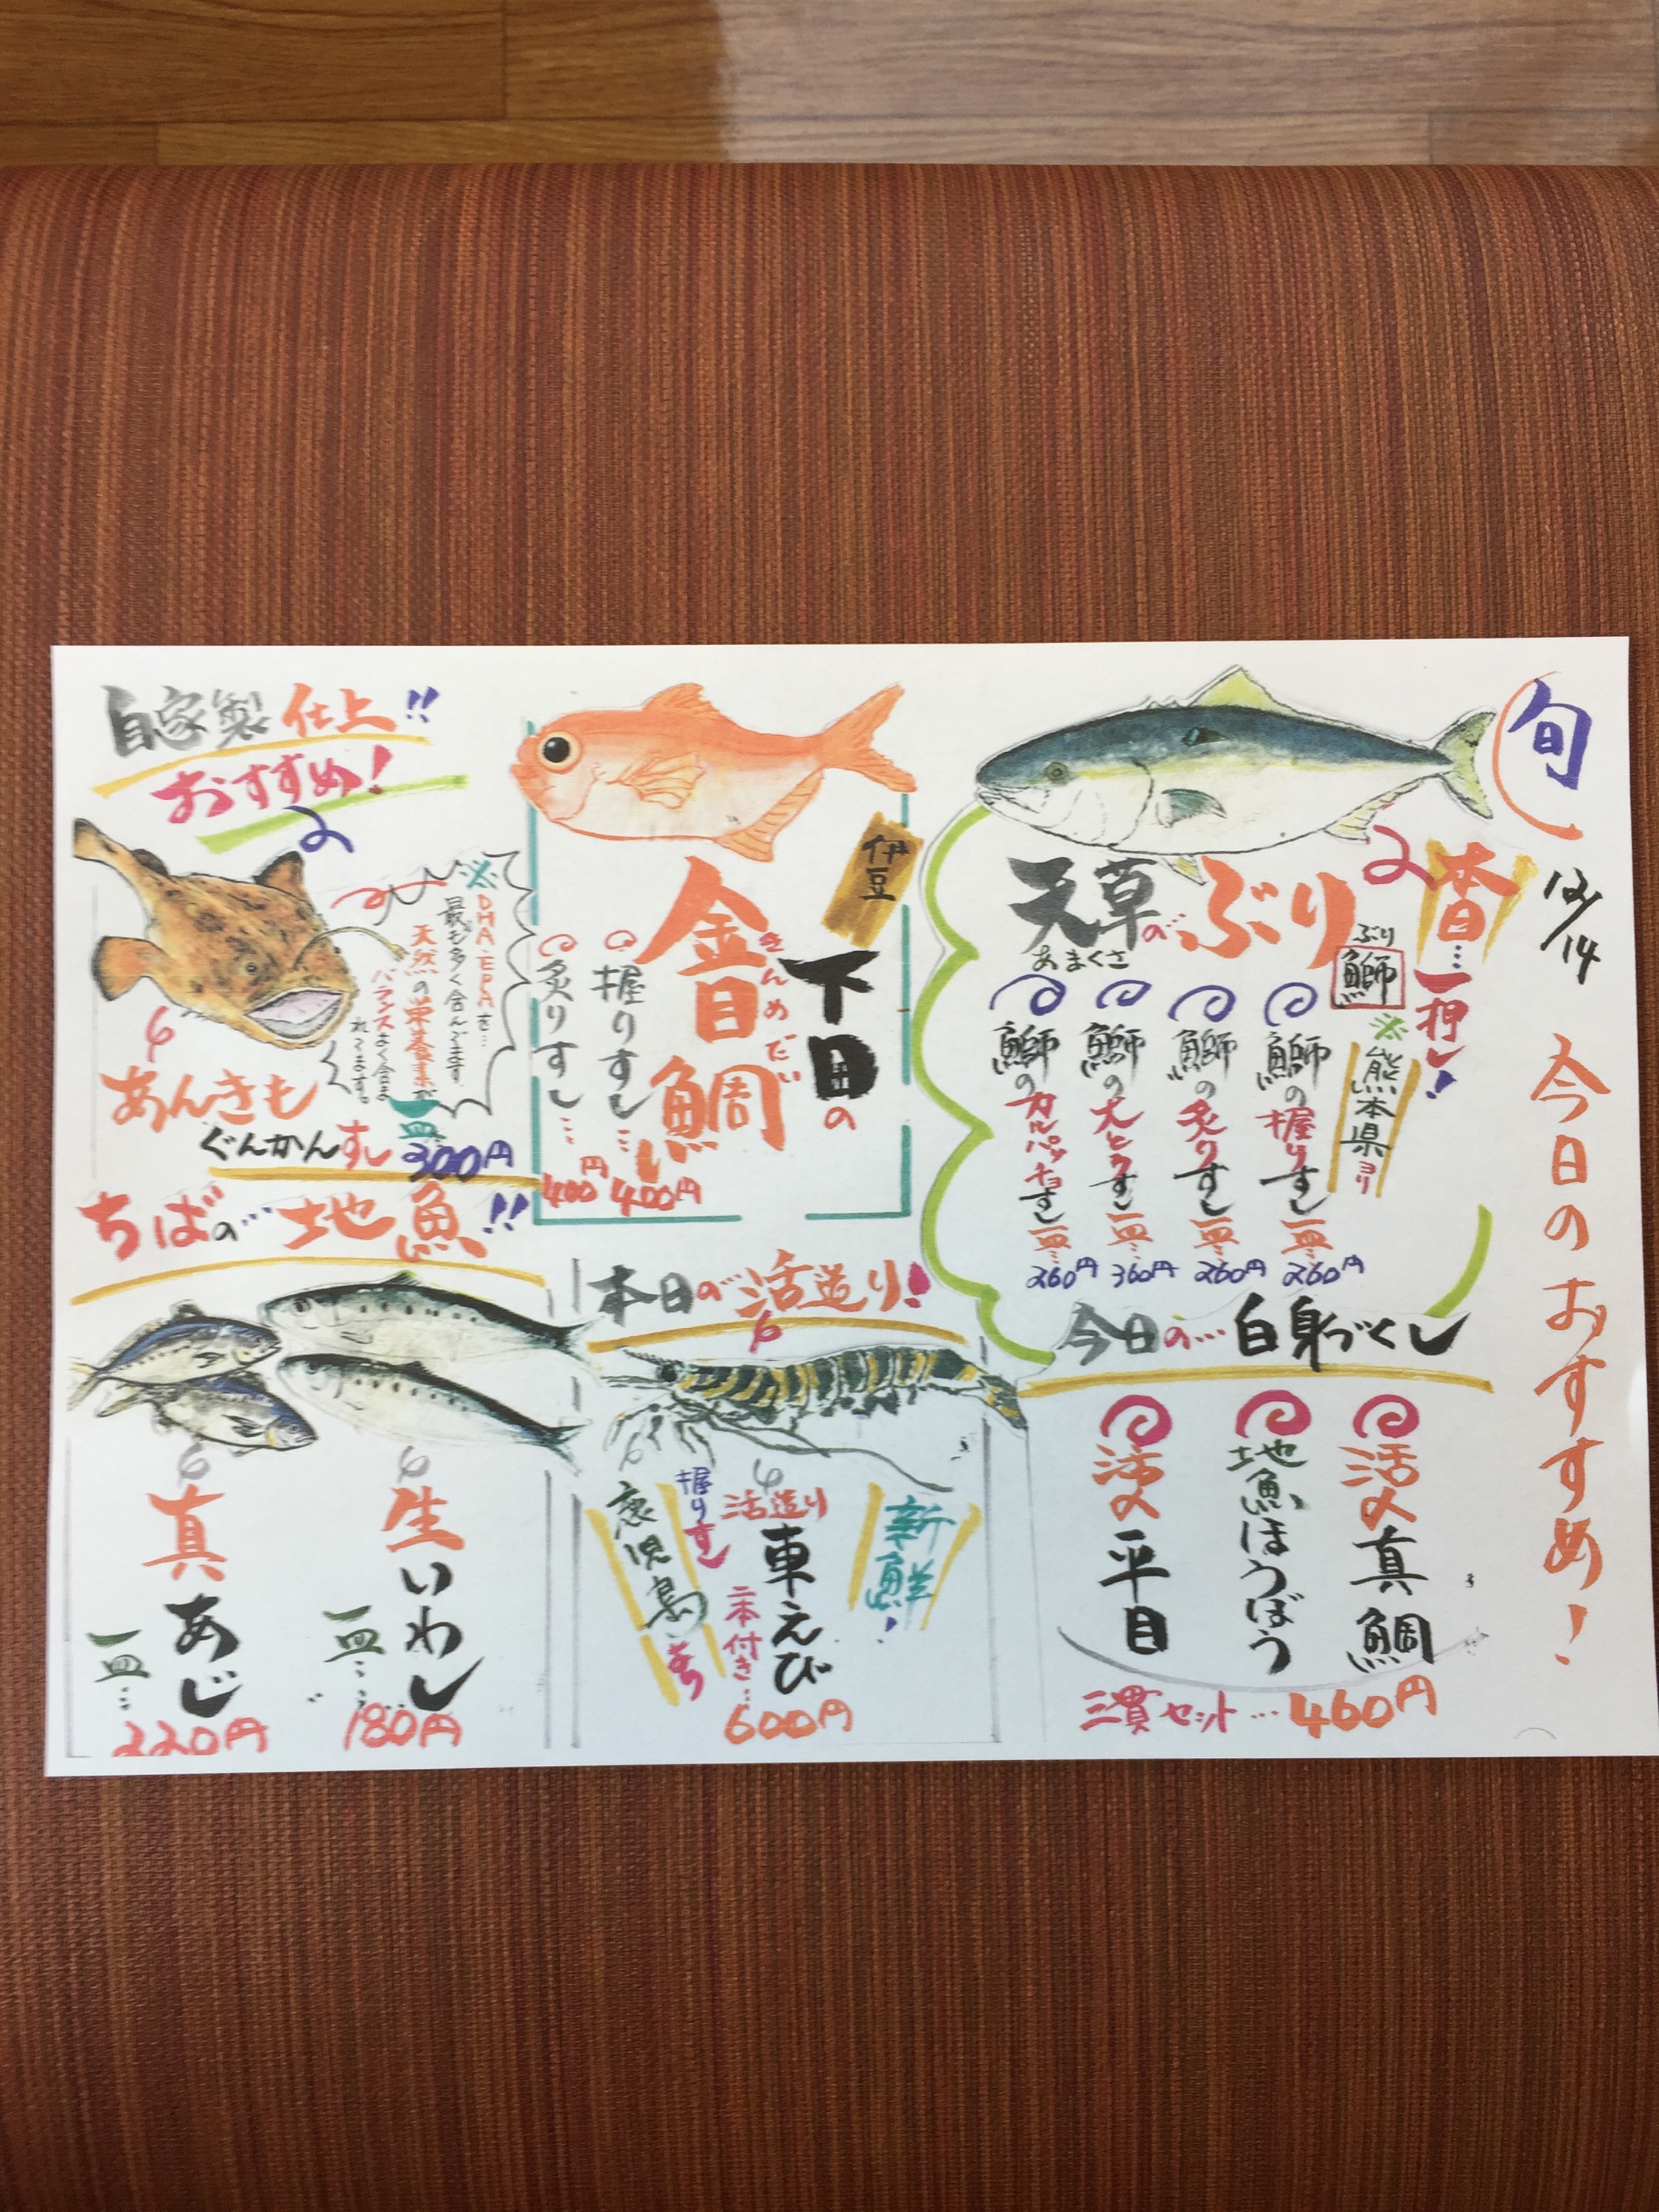 旬
12/14
今日のおすすめ！
一押し！
天草のぶり
あまくさ
ぶり
鰤
※熊本県ヨリ
鰤の握りすし一皿…260円
鰤の炙りすし一皿…260円
鰤の大とろすし一皿…360円
鰤のカルパッチョすし一皿…260円
今日の…白身づくし
活〆真鯛
地魚ほうぼう
活〆平目
三貫セット…460円
伊豆
下田の
金目鯛
きんめだい
握りすし…400円
炙りすし…400円
本日の活造り！
新鮮！
活造り
車えび
握りすし
二本付き…
600円
鹿児島
自家製仕上!!
おすすめ！
※DHA・EPAを…
最も多く含んでます
天然の栄養素が
バランスよく含ま
れてます。
あんきも
ぐんかんすし
一皿
300円
ちばの…地魚!!
生いわし
一皿…
180円
真あじ
一皿…
220円